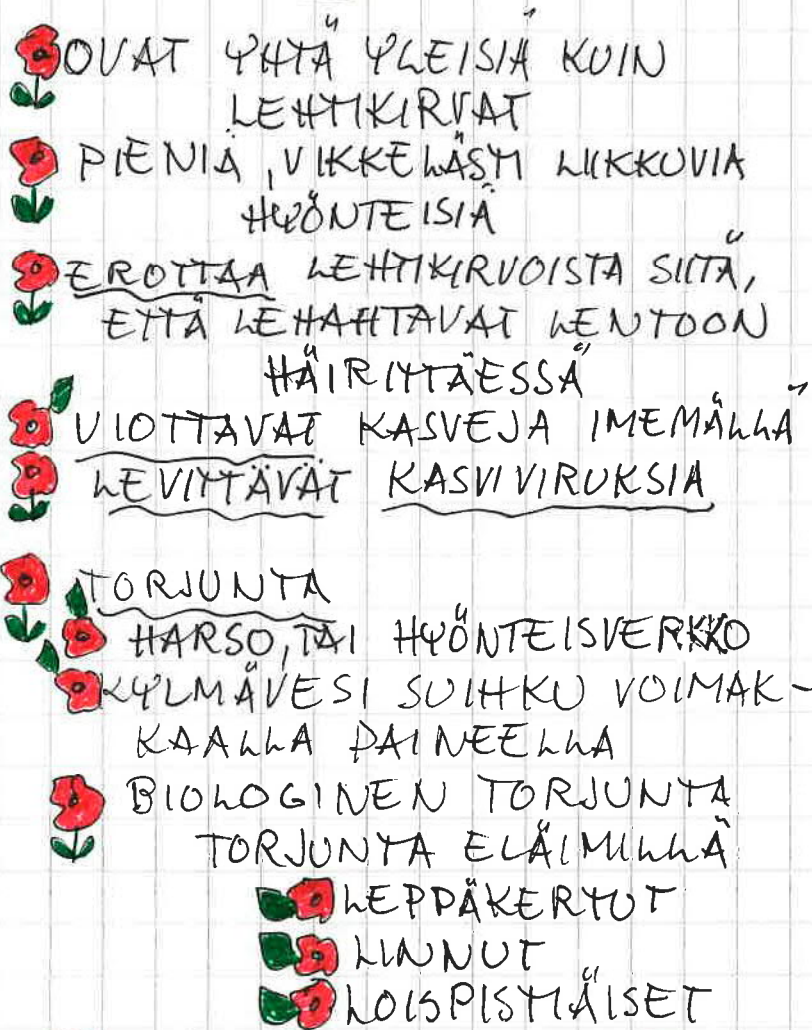 OVAT YHTÄ YLEISIÄ KUIN
LEHTIKIRVAT
PIENIÄ, VIKKELÄSTI LIIKKUVIA
HYÖNTEISIÄ
EROTTAA LEHTIKIRVOISTA SIITÄ,
ETTÄ LEHAHTAVAT LENTOON
HÄIRITTÄESSÄ
VIOTTAVAT KASVEJA IMEMÄLLÄ
LEVITTÄVÄT KASVIVIRUKSIA
TORJUNTA
HARSO, TAI HYÖNTEISVERKKO
KYLMÄVESI SUIHKU VOIMAK-
KAALLA PAINEELLA
BIOLOGINEN TORJUNTA
TORJUNTA ELÄIMILLÄ
LEPPÄKERTUT
LINNUT
LOISPISTIÄISET